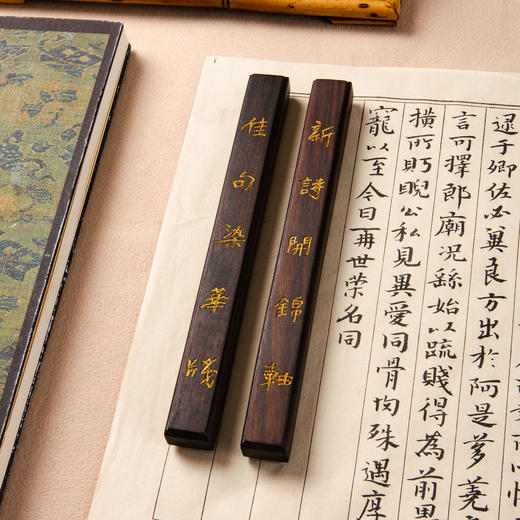 逮于卿佐必冀良方出於阿是芻蕘
言可擇郎廟況繇始以疏賤得為前恩
横所眄睨公私見異愛同骨肉殊遇厚
寵以至今日再世榮名同
新詩開錦軸
佳句染華牋